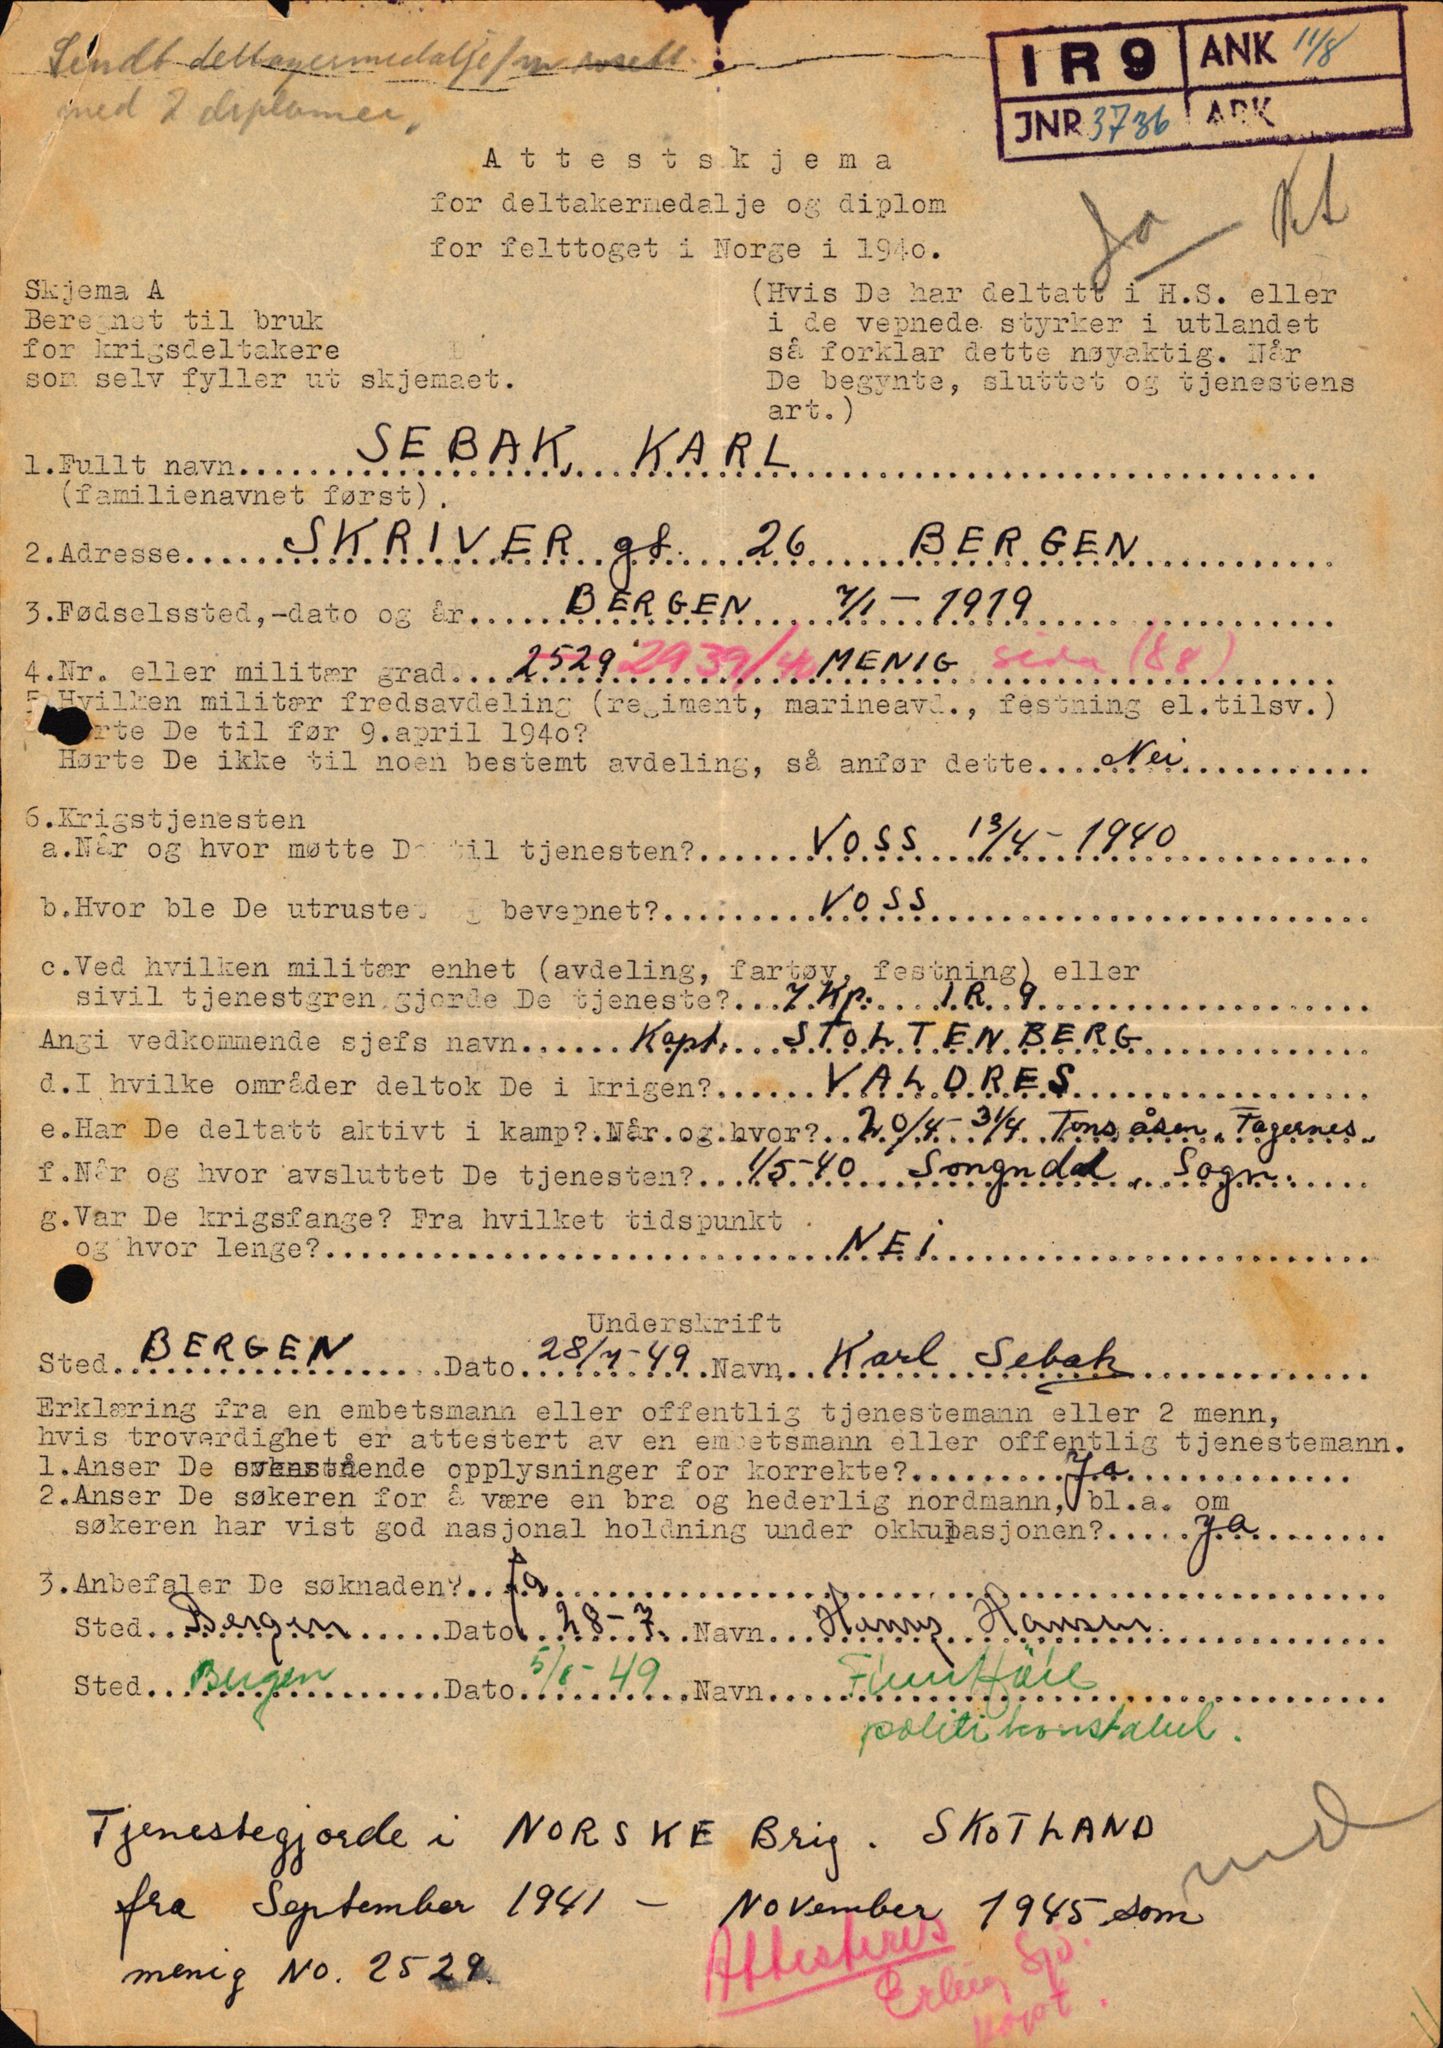 Sendt deltagermedalje/m rosett
med 2 diplomer.
IR9 ANK 11/8
JNR 3736 ARK
Attestskjema
for deltakermedalje og diplom
for felttoget i Norge i 1940.
Ja
Skjema A
Beregnet til bruk
for krigsdeltakere
som selv fyller ut skjemaet.
(Hvis De har deltatt i H.S. eller
i de vepnede styrker i utlandet
så forklar dette nøyaktig. Når
De begynte, sluttet og tjenestens
art.)
1.Fullt navn... SEBAK, KARL
(familienavnet først).
2.Adresse... SKRIVER gt. 26 BERGEN
3.Fødselssted,-dato og år... BERGEN 7/1 - 1919
4.Nr. eller militær grad... 2529 2939/40 MENIG side (88)
5.Hvilken militær fredsavdeling (regiment, marineavd., festning el.tilsv.)
hørte De til før 9.april 1940?
Hørte De ikke til noen bestemt avdeling, så anfør dette... Nei
6.Krigstjenesten
a.Når og hvor møtte De til tjenesten?... VOSS 13/4 - 1940
b.Hvor ble De utrustet og bevepnet?... VOSS
c.Ved hvilken militær enhet (avdeling, fartøy, festning) eller
sivil tjenestgren gjorde De tjeneste?... 7 Kp. I.R. 9
Angi vedkommende sjefs navn... Kapt. STOLTENBERG
d.I hvilke områder deltok De i krigen?... VALDRES
e.Har De deltatt aktivt i kamp?.Når.og.hvor?.. 20/4 - 31/4 Tonsåsen, Fagernes
f.Når og hvor avsluttet De tjenesten?... 1/5-40 Songndal, Sogn.
g.Var De krigsfange? Fra hvilket tidspunkt
og hvor lenge?... NEI
Underskrift
Sted... BERGEN Dato 28/7-49 Navn Karl Sebak
Erklæring fra en embetsmann eller offentlig tjenestemann eller 2 menn,
hvis troverdighet er attestert av en embetsmann eller offentlig tjenestemann.
1.Anser De ovenstående opplysninger for korrekte?... Ja
2.Anser De søkeren for å være en bra og hederlig nordmann, bl.a. om
søkeren har vist god nasjonal holdning under okkupasjonen?... Ja
3.Anbefaler De søknaden?.. Ja
Sted... Bergen Dato 28-7 Navn... Hansen
Sted... Bergen Dato 5/8-49 Navn... Finn
politikonstabel.
Tjenestegjorde i NORSKE Brig. SKOTLAND
fra September 1941 - NOVember 1945 som
menig NO. 2529.
Attesteres
Erling
kapt.